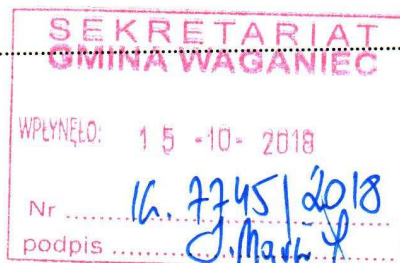 SEKRETARIAT
GMINA WAGANIEC
WPŁYNĘŁO: 15 -10- 2018
Nr ..... 7745/2018
podpis .....